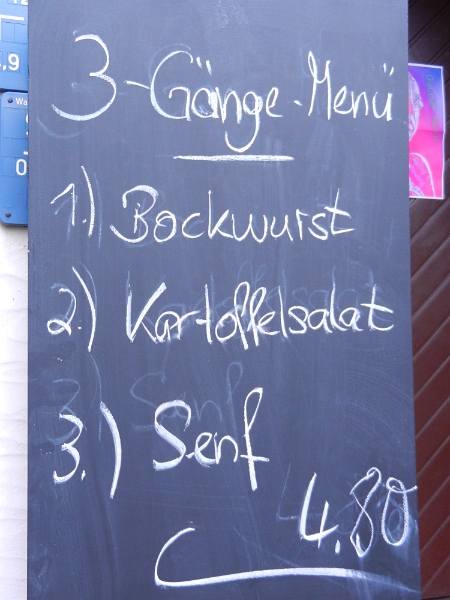 3-Gänge-Menü
1.) Bockwurst
2.) Kartoffelsalat
3.) Senf
4.80